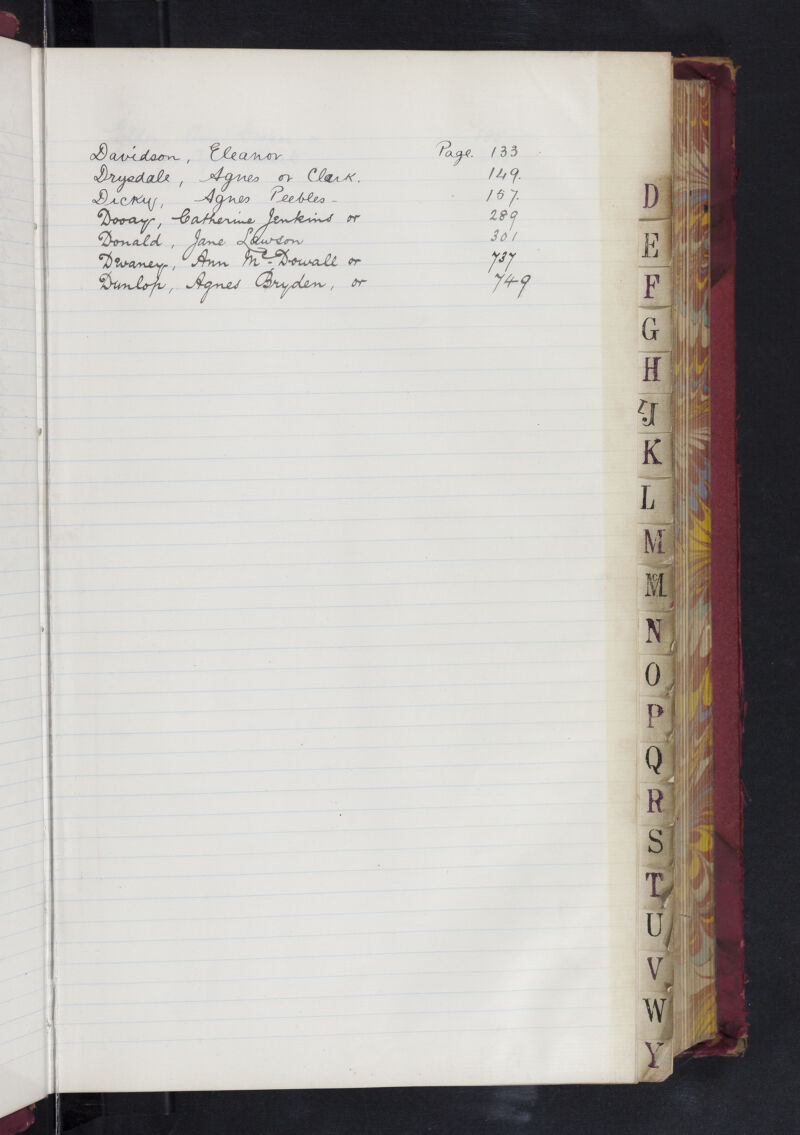 Davidson, Eleanor Page. 133
Drysdale, Agnes or Clark. 149.
Dicky, Agnes Peebles - 157.
Catherine Jenkins or 289
Donald, Jane Lawson 301
Dwaney, Ann Mc-Dowall or 737
Dunlop, Agnes Bryden, or 749
D
E
F
G
H
IJ
K
L
M
Mc
N
O
P
Q
R
S
T
U
V
W
Y